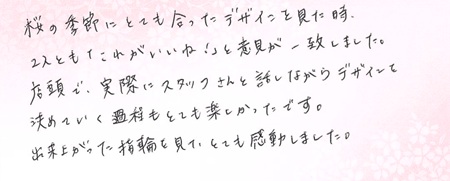 桜の季節にとても合ったデザインを見た時、
2人とも「これがいいね！」と意見が一致しました。
店頭で、実際にスタッフさんと話しながらデザインを
決めていく過程もとても楽しかったです。
出来上がった指輪を見て、とても感動しました。